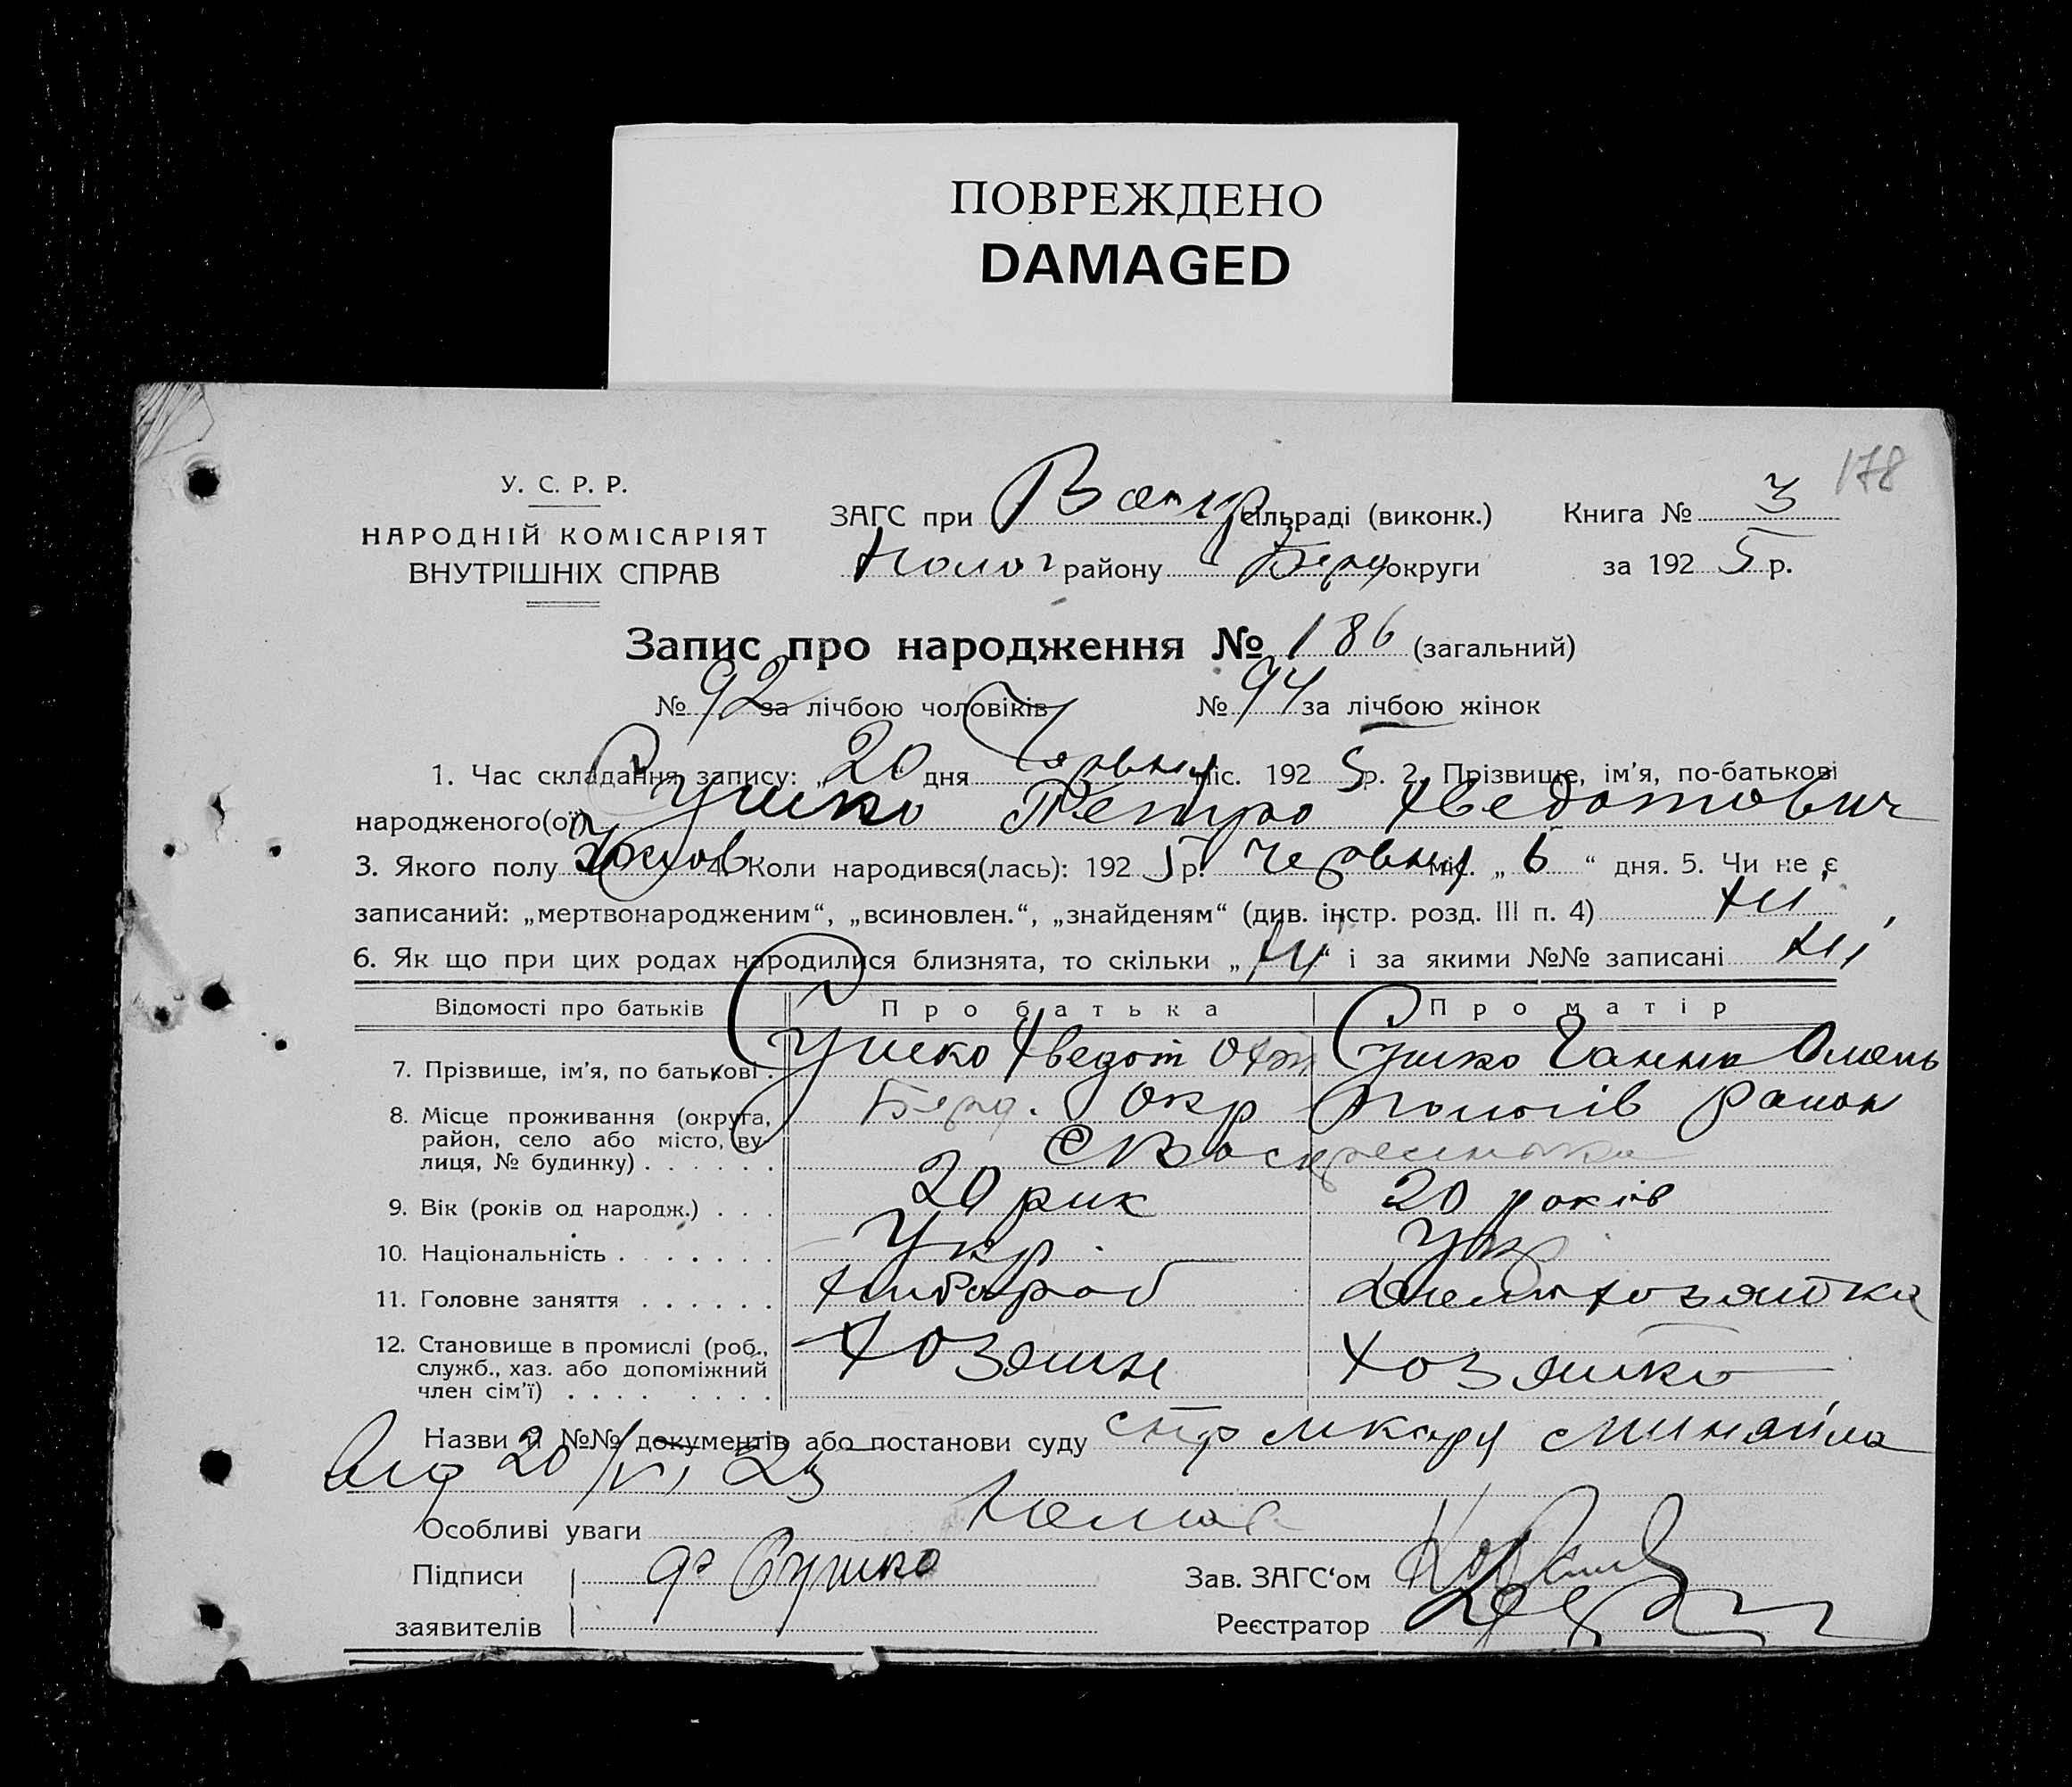 ПОВРЕЖДЕНО
DAMAGED
178
У. С. Р. Р.
НАРОДНІЙ КОМІСАРІЯТ
ВНУТРІШНІХ СПРАВ
ЗАГС при сільраді (виконк.)
Полог району Берд округи
Книга № 3
за 1925 р.
Запис про народження № 186 (загальний)
№ 92 за лічбою чоловіків № 94 за лічбою жінок
1. Час складання запису: „20“ дня Червня міс. 1925 р. 2. Прізвище, ім'я, по-батькові
народженого(ої) Сушко Петро Хведотович
3. Якого полу 4. Коли народився(лась): 1925 р. червня міс. „6“ дня. 5. Чи не є
записаний: „мертвонародженим“, „всиновлен.“, „знайденям“ (див. інстр. розд. III п. 4) ні
6. Як що при цих родах народилися близнята, то скільки „ні“ і за якими №№ записані ні
Відомості про батьків Про батька Про матір
7. Прізвище, ім'я, по батькові . Сушко Хведот Сушко Ганна Омель
8. Місце проживання (округа, район, село або місто, вулиця, № будинку) . . . . . . Берд. Окр Пологів район
с Воскресенька
9. Вік (років од народж.) . . . 20 рик 20 років
10. Національність . . . . . . . Укр. Укр
11. Головне заняття . . . . . . Хлибороб
12. Становище в промислі (роб., служб., хаз. або допоміжний член сім'ї) . . . . . . . . Хозяин Хозяйка
Назви й №№ документів або постанови суду
20/VI 25
Особливі уваги Немає
Підписи Сушко
заявителів
Зав. ЗАГС'ом
Реєстратор